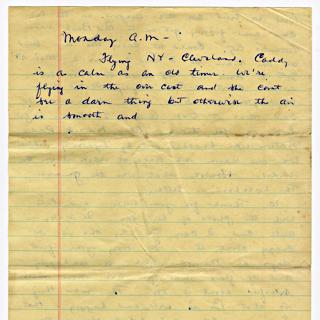 Monday A.M -
Flying NY - Cleveland. Caddy
is as calm as an old timer. We're
flying in the over cast and she cant
see a darn thing but otherwise the air
is smooth and